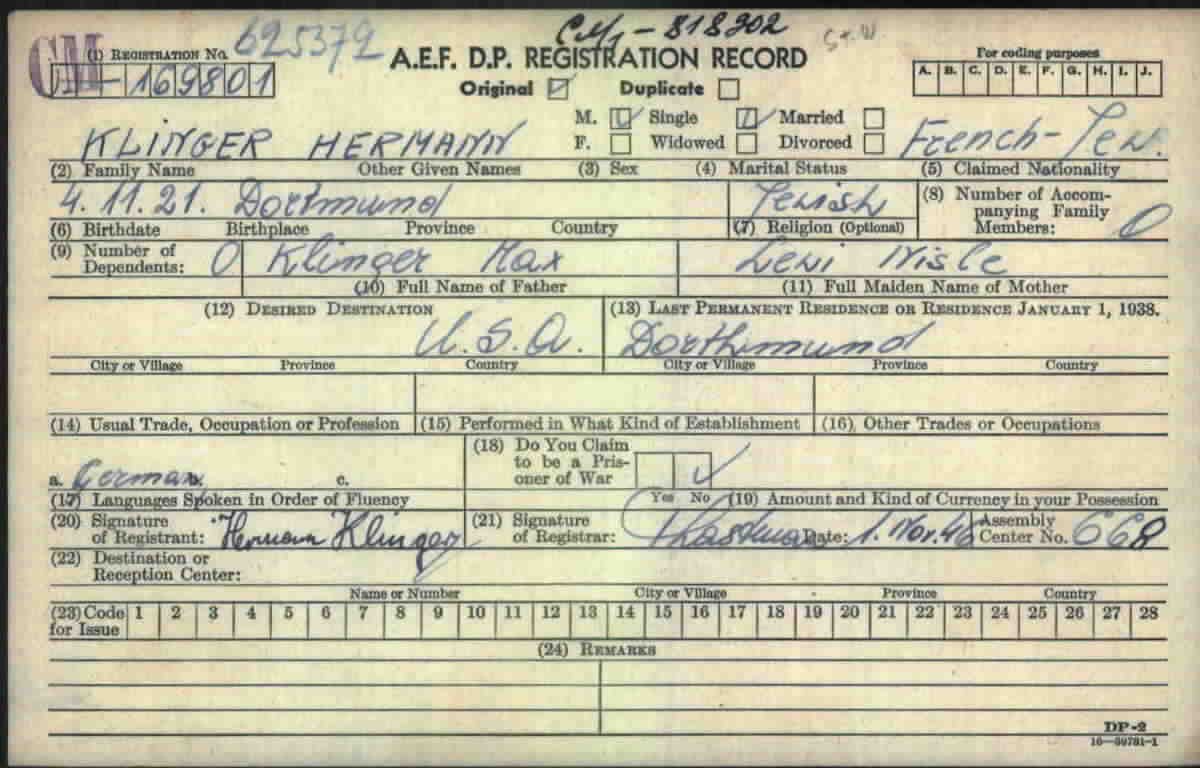 CM
(1) REGISTRATION No. 625372
169801
818202
A.E.F. D.P. REGISTRATION RECORD
Original ☑ Duplicate ☐
For coding purposes
A. B. C. D. E. F. G. H. I. J.
M. ☑ Single ☑ Married ☐
F. ☐ Widowed ☐ Divorced ☐
KLINGER HERMANN French-Jew.
(2) Family Name Other Given Names (3) Sex (4) Marital Status (5) Claimed Nationality
4.11.21. Dortmund Jewish
(6) Birthdate Birthplace Province Country (7) Religion (Optional)
(8) Number of Accom-
panying Family
Members: 0
(9) Number of
Dependents: 0 Klinger Max Levi
(10) Full Name of Father (11) Full Maiden Name of Mother
(12) DESIRED DESTINATION (13) LAST PERMANENT RESIDENCE OR RESIDENCE JANUARY 1, 1938.
U.S.A. Dorthmund
City or Village Province Country City or Village Province Country
(14) Usual Trade, Occupation or Profession (15) Performed in What Kind of Establishment (16) Other Trades or Occupations
a. German b. c.
(17) Languages Spoken in Order of Fluency
(18) Do You Claim
to be a Pris-
oner of War
Yes No ✓
(19) Amount and Kind of Currency in your Possession
(20) Signature
of Registrant: Hermann Klinger
(21) Signature
of Registrar: Date: 1. Nov. 46
Assembly
Center No. 668
(22) Destination or
Reception Center:
Name or Number City or Village Province Country
(23) Code
for Issue
1 2 3 4 5 6 7 8 9 10 11 12 13 14 15 16 17 18 19 20 21 22 23 24 25 26 27 28
(24) REMARKS
DP-2
16—39781-1